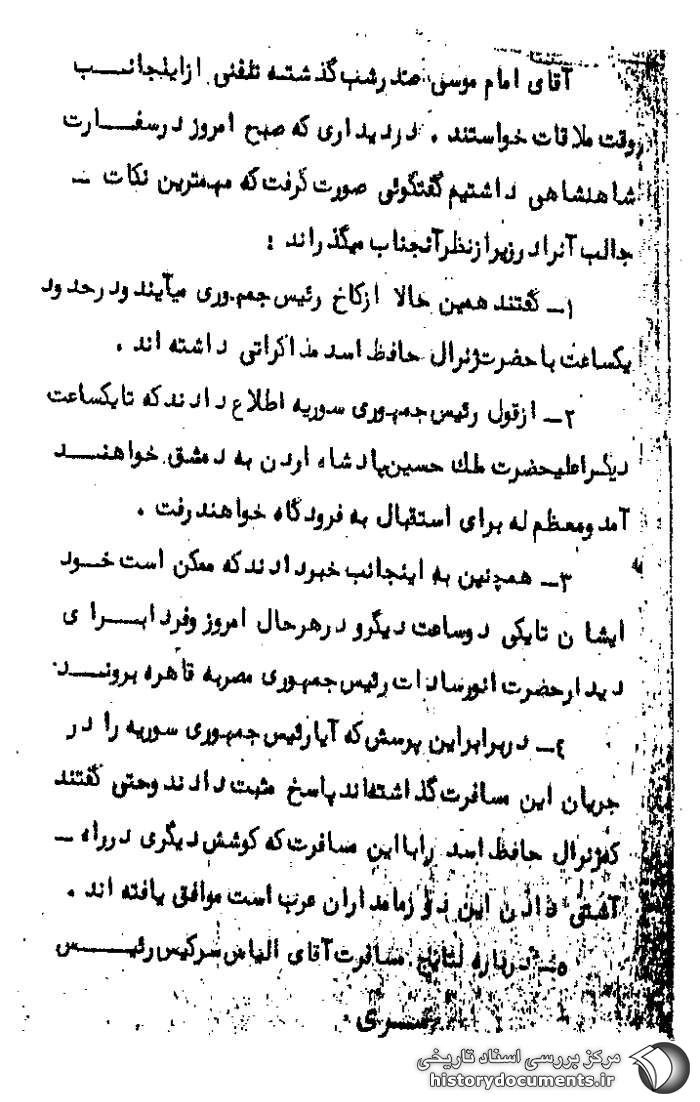 آقای امام موسی صدر شب گذشته تلفنی از اینجانب
وقت ملاقات خواستند . در دیداری که صبح امروز در سفارت
شاهنشاهی داشتیم گفتگوئی صورت گرفت که مهمترین نکات ـ
جالب آنرا در زیر از نظر آنجناب میگذراند :
۱ـ گفتند همین حالا از کاخ رئیس جمهوری میآیند و در حدود
یکساعت با حضرت ژنرال حافظ اسد مذاکراتی داشته اند .
۲ـ از قول رئیس جمهوری سوریه اطلاع دادند که تا یکساعت
دیگر اعلیحضرت ملک حسین پادشاه اردن به دمشق خواهند
آمد و معظم له برای استقبال به فرودگاه خواهند رفت .
۳ـ همچنین به اینجانب خبر دادند که ممکن است خود
ایشان تا یکی دو ساعت دیگر و در هر حال امروز و فردا برای
دیدار حضرت انور سادات رئیس جمهوری مصر به قاهره بروند .
٤ـ در برابر این پرسش که آیا رئیس جمهوری سوریه را در
جریان این مسافرت گذاشته‌اند پاسخ مثبت دادند و حتی گفتند
که ژنرال حافظ اسد را با این مسافرت که کوشش دیگری در راه ـ
آشتی دادن این دو زمامداران عرب است موافق یافته اند .
٥ـ درباره نتایج مسافرت آقای الیاس سرکیس رئیس
مرکز بررسی اسناد تاریخی
historydocuments.ir